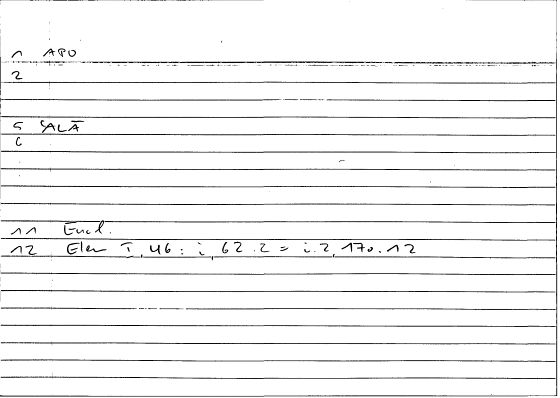 1 APO
2
5 ṢALĀ
6
11 Eucl.
12 Elem I, 46: i, 62.2 = i.2, 170.12